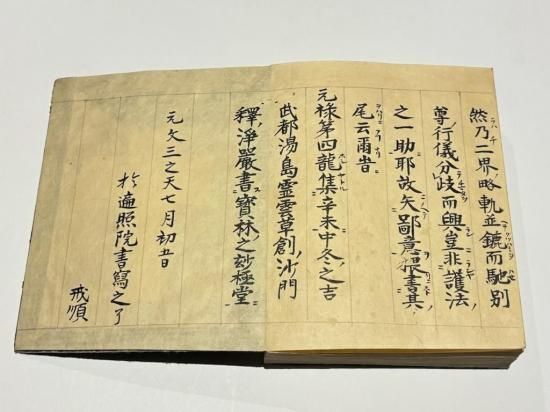 然乃二界畧軌並鑣而馳別
尊行儀分歧而興豈非護法
之一助耶故矢鄙意猥書其
尾云爾旹
元禄第四龍集辛未中冬之吉
武都湯島霊雲草創沙門
釋淨嚴書寶林之玅極堂
元文三之天七月初五日
於遍照院書寫之了
戒順